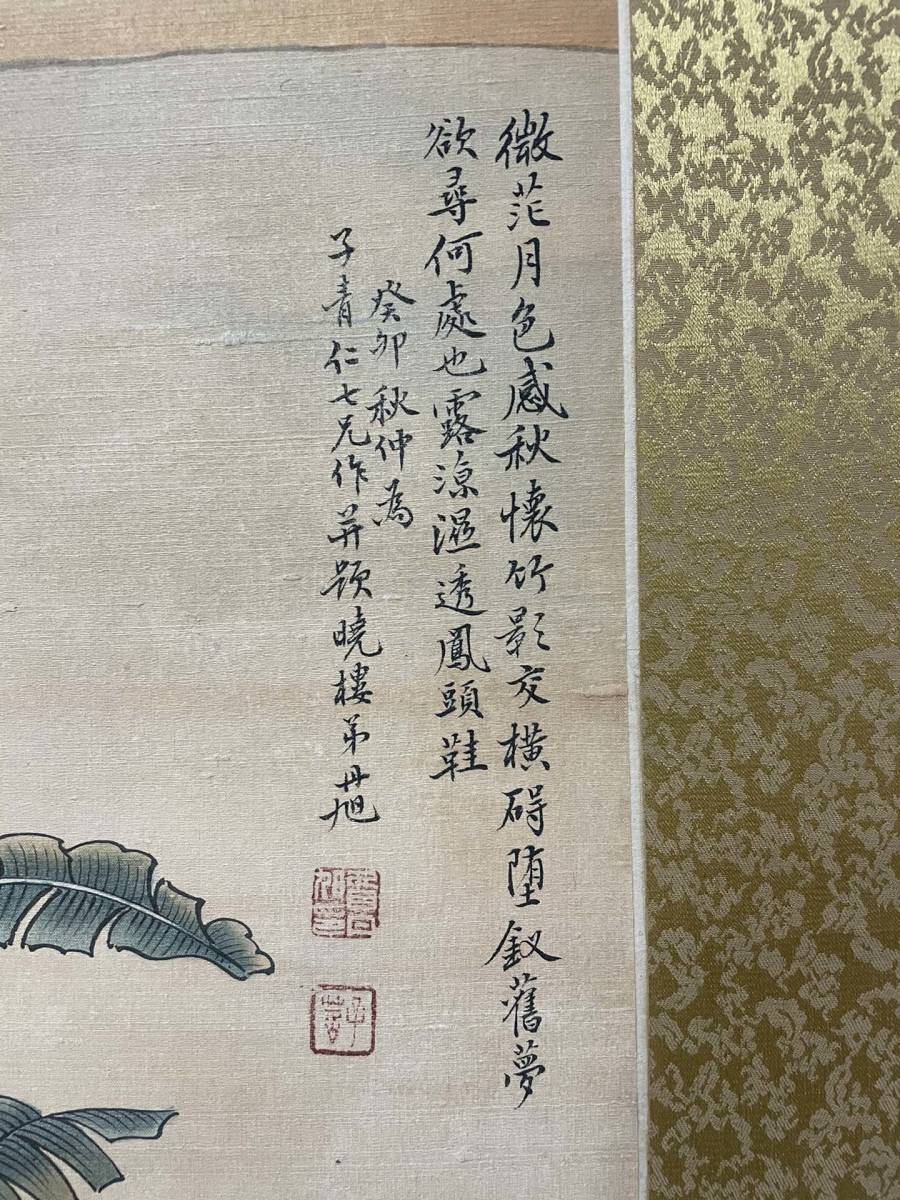 微茫月色感秋懷竹影交橫碍堕釵舊夢
欲尋何處也露涼濕透鳳頭鞋
癸卯秋仲為
子青仁七兄作并題曉樓弟丹旭